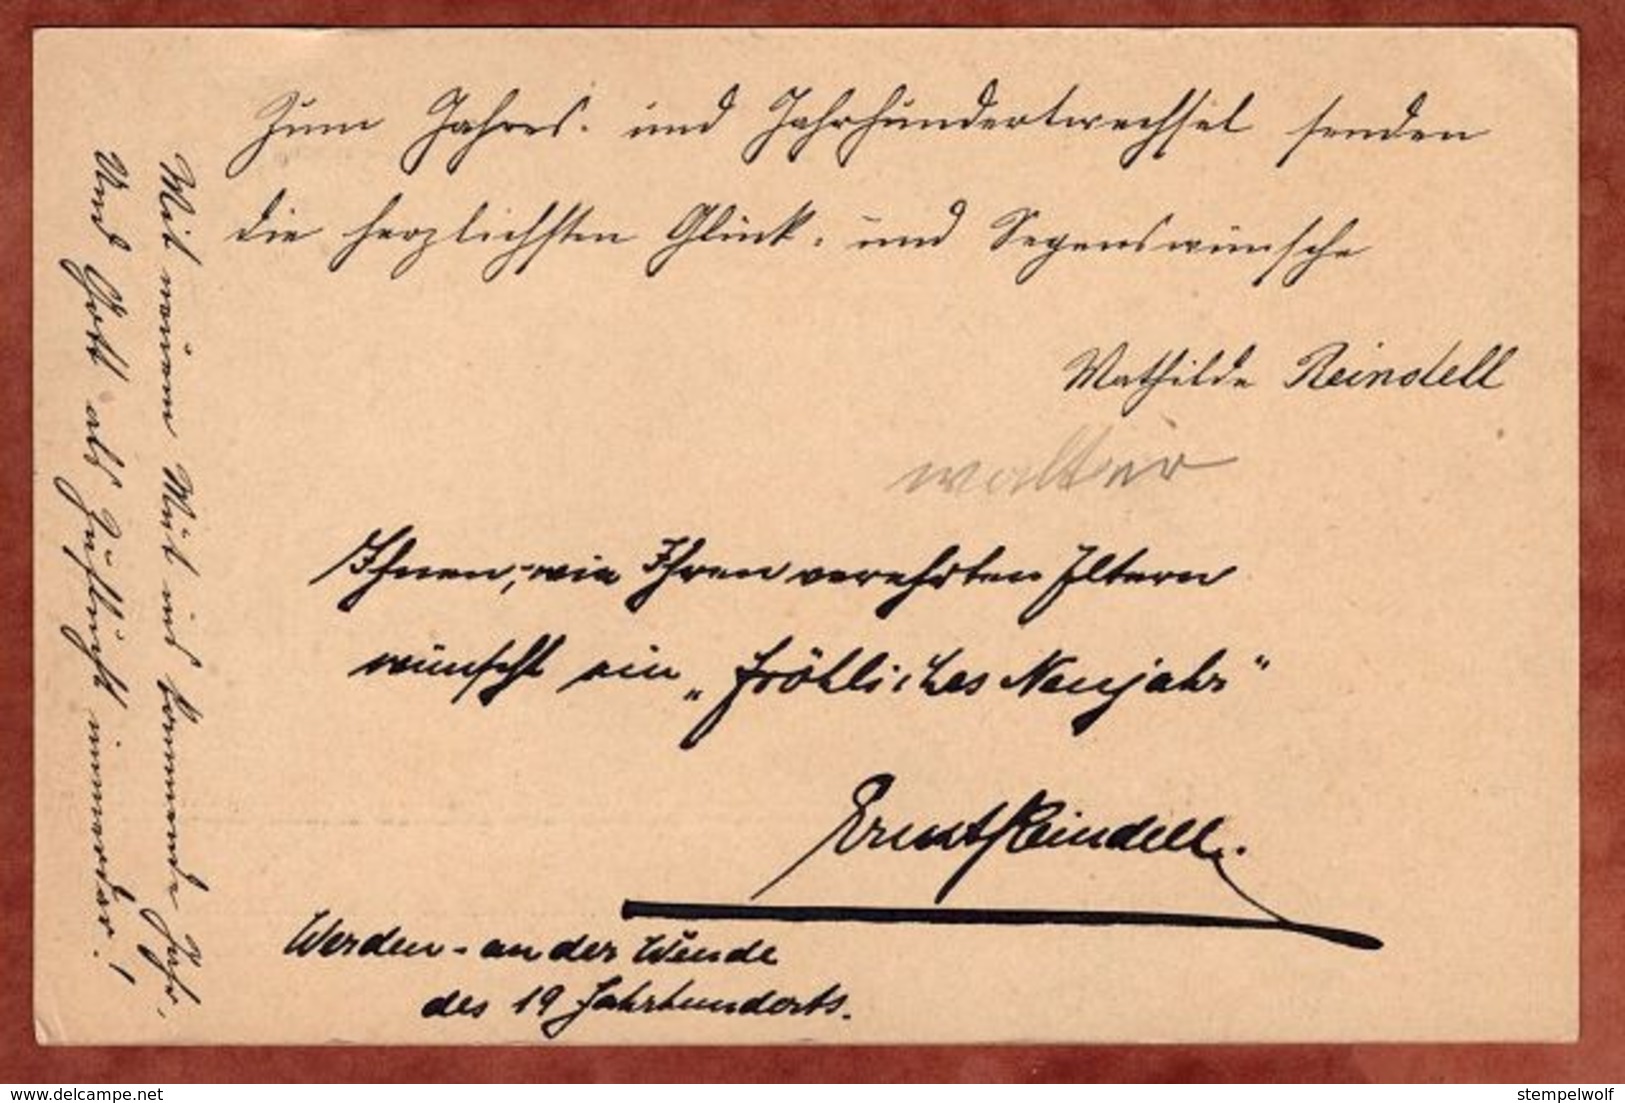 Zum Jahres- und Jahrhundertwechsel senden
die herzlichsten Glück- und Segenswünsche
Mathilde Reindell
Walter
Ihnen, wie Ihren verehrten Eltern
wünscht ein „fröhliches Neujahr"
Ernst Reindell.
Werden - an der Wende
des 19 Jahrhunderts.
Mit neuem Mut ins kommende Jahr,
Und Gott als Zuflucht immerdar!
stempelwolf
© delcampe.net
stempelwolf